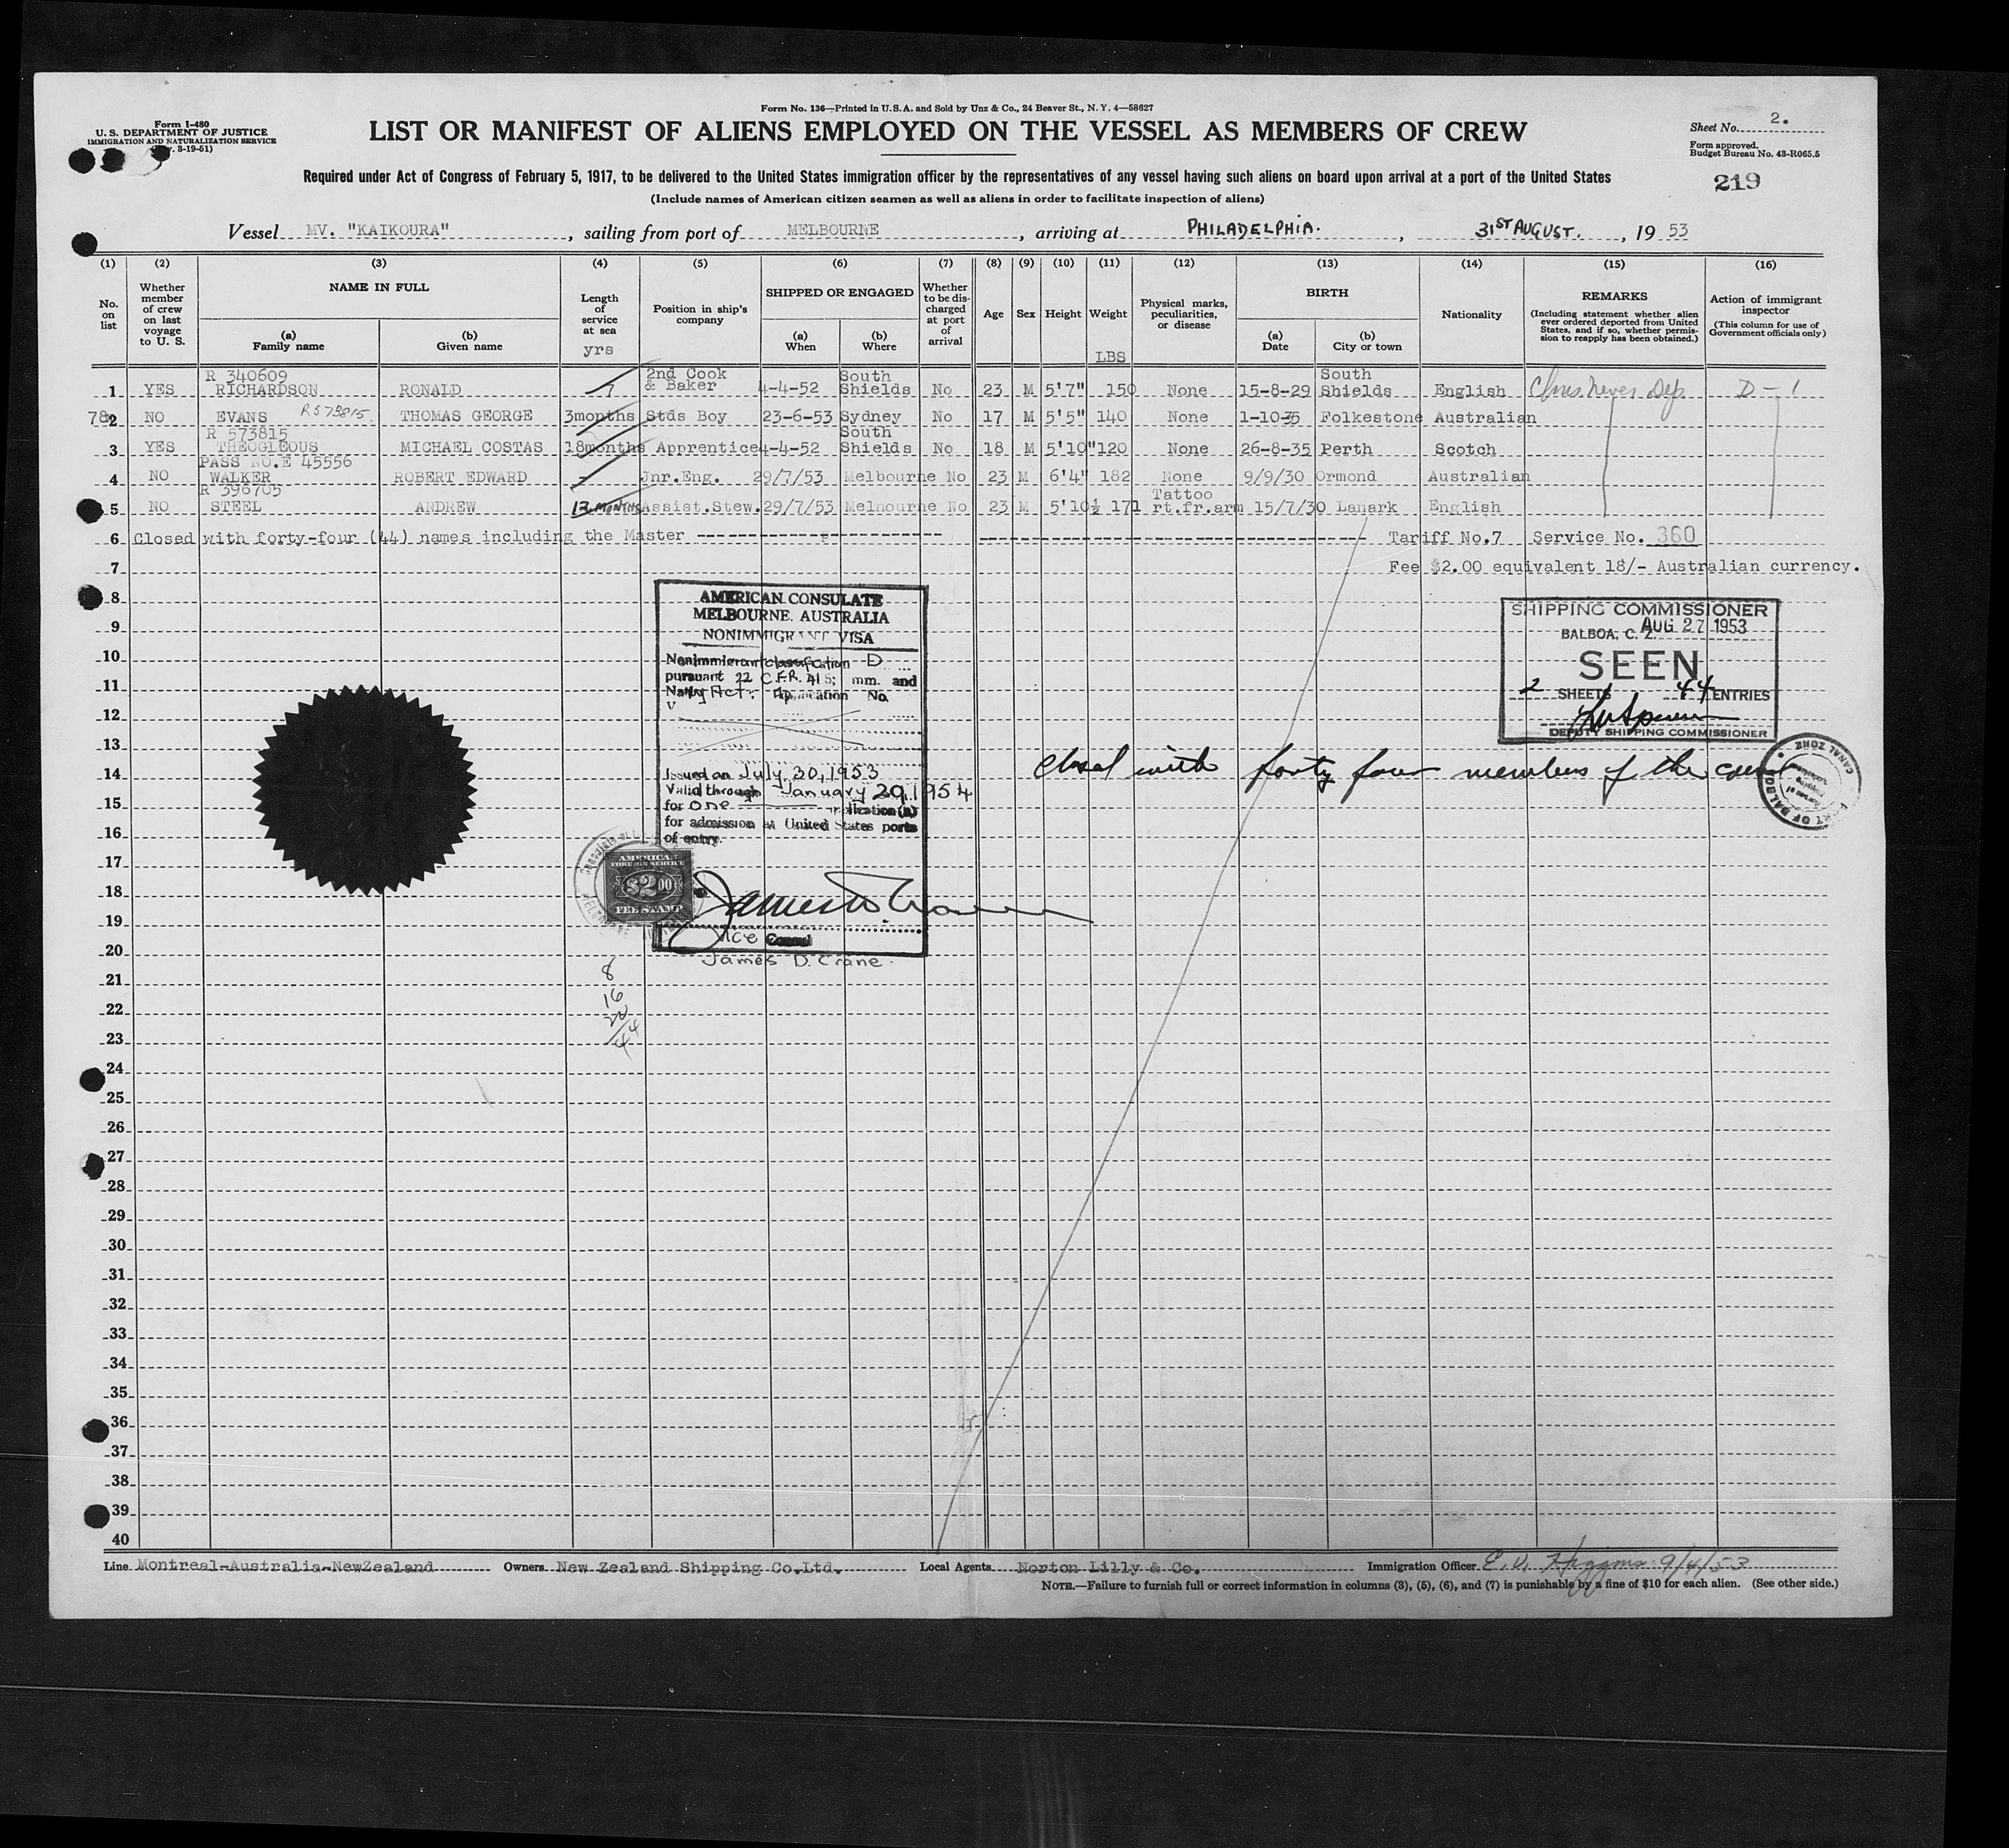 Form No. 136—Printed in U.S.A. and Sold by Unz & Co., 24 Beaver St., N. Y. 4—58627
Form I-480
U. S. DEPARTMENT OF JUSTICE
IMMIGRATION AND NATURALIZATION SERVICE
3-19-51)
LIST OR MANIFEST OF ALIENS EMPLOYED ON THE VESSEL AS MEMBERS OF CREW
Sheet No. 2.
Form approved.
Budget Bureau No. 43-R065.5
219
Required under Act of Congress of February 5, 1917, to be delivered to the United States immigration officer by the representatives of any vessel having such aliens on board upon arrival at a port of the United States
(Include names of American citizen seamen as well as aliens in order to facilitate inspection of aliens)
Vessel MV. "KAIKOURA", sailing from port of MELBOURNE, arriving at PHILADELPHIA., 31ST AUGUST., 19 53
(1) (2) (3) (4) (5) (6) (7) (8) (9) (10) (11) (12) (13) (14) (15) (16)
No. on list
Whether member of crew on last voyage to U. S.
NAME IN FULL
(a) Family name
(b) Given name
Length of service at sea
yrs
Position in ship's company
SHIPPED OR ENGAGED
(a) When
(b) Where
Whether to be discharged at port of arrival
Age
Sex
Height
Weight
LBS
Physical marks, peculiarities, or disease
BIRTH
(a) Date
(b) City or town
Nationality
REMARKS
(Including statement whether alien ever ordered deported from United States, and if so, whether permission to reapply has been obtained.)
Action of immigrant inspector
(This column for use of Government officials only)
R 340609
1 YES RICHARDSON RONALD 7 2nd Cook & Baker 4-4-52 South Shields No 23 M 5'7" 150 None 15-8-29 South Shields English Never Dep D-1
2 NO EVANS R573815 THOMAS GEORGE 3months Stds Boy 23-6-53 Sydney No 17 M 5'5" 140 None 1-10-35 Folkestone Australian
R 573815
3 YES THEOGLEOUS MICHAEL COSTAS 18months Apprentice 4-4-52 South Shields No 18 M 5'10" 120 None 26-8-35 Perth Scotch
PASS NO.E 45556
4 NO WALKER ROBERT EDWARD - Jnr.Eng. 29/7/53 Melbourne No 23 M 6'4" 182 None 9/9/30 Ormond Australian
R 396705
5 NO STEEL ANDREW 12 MONTHS Assist.Stew. 29/7/53 Melnourne No 23 M 5'10½ 171 Tattoo rt.fr.arm 15/7/30 Lanark English
6 Closed with forty-four (44) names including the Master Tariff No.7 Service No. 360
7 Fee $2.00 equivalent 18/- Australian currency.
8
9
10
11
12
13
14
15
16
17
18
19
20
21
22
23
24
25
26
27
28
29
30
31
32
33
34
35
36
37
38
39
40
AMERICAN CONSULATE
MELBOURNE. AUSTRALIA
NONIMMIGRANT VISA
Nonimmigrant classification D
pursuant 22 C.F.R. 41.5; Imm. and
Natly Act; Application No.
V
Issued on July 30, 1953
Valid through January 29, 1954
for one application(s)
for admission at United States ports
of entry.
Vice Consul
James D. Crane.
AMERICAN
FOREIGN SERVICE
$2.00
FEE STAMP
8
16
20
44
SHIPPING COMMISSIONER
BALBOA, C. Z. AUG 27 1953
SEEN
2 SHEETS 44 ENTRIES
DEPUTY SHIPPING COMMISSIONER
CANAL ZONE
PORT OF BALBOA
Closed with forty four members of the crew
Line Montreal-Australia-NewZealand Owners New Zealand Shipping Co.Ltd. Local Agents Norton Lilly & Co. Immigration Officer E. V. Higgins 9/4/53
NOTE.—Failure to furnish full or correct information in columns (3), (5), (6), and (7) is punishable by a fine of $10 for each alien. (See other side.)